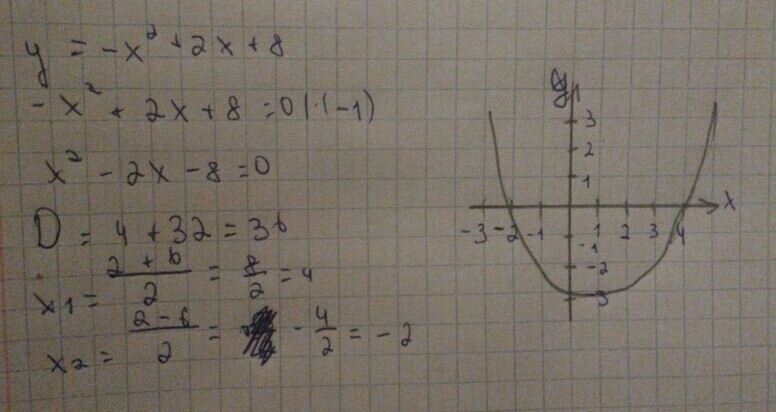 y = -x² + 2x + 8
-x² + 2x + 8 = 0 | · (-1)
x² - 2x - 8 = 0
D = 4 + 32 = 36
x1 = (2 + 6)/2 = 8/2 = 4
x2 = (2 - 6)/2 = -4/2 = -2
y
3
2
1
-3 -2 -1 1 2 3 4 x
-1
-2
-3